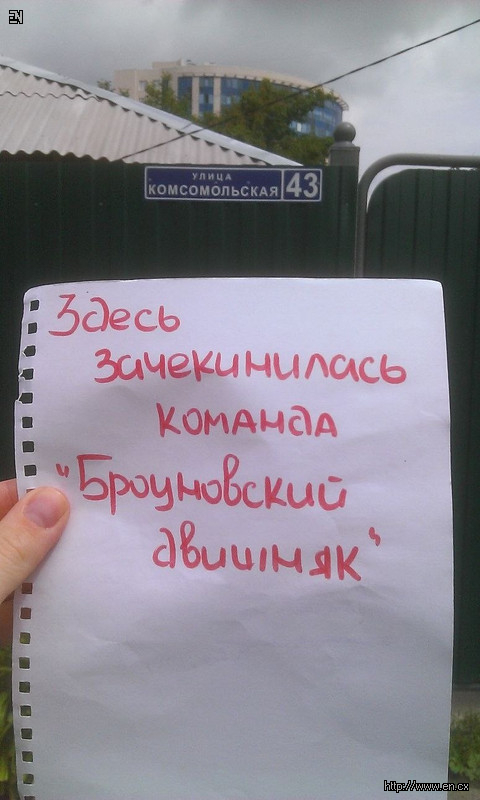 EN
УЛИЦА
КОМСОМОЛЬСКАЯ 43
Здесь
зачекинилась
команда
"Броуновский
движняк"
http://www.en.cx